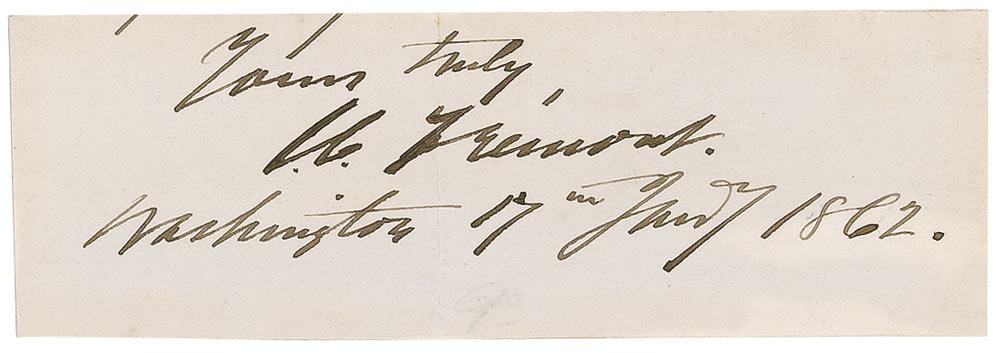 Yours truly,
J.C. Frémont.
Washington 17th Jany 1862.